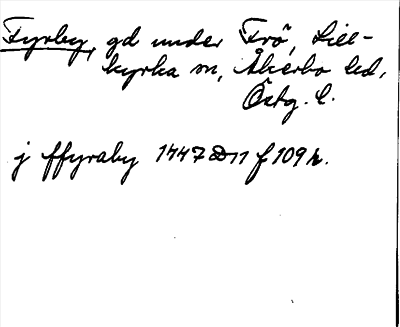 Fyrby, gd under Frö, Lill-
kyrka sn, Åkerbo hd,
Östg. l.
j ffyraby 1447 D11 f 109 h.